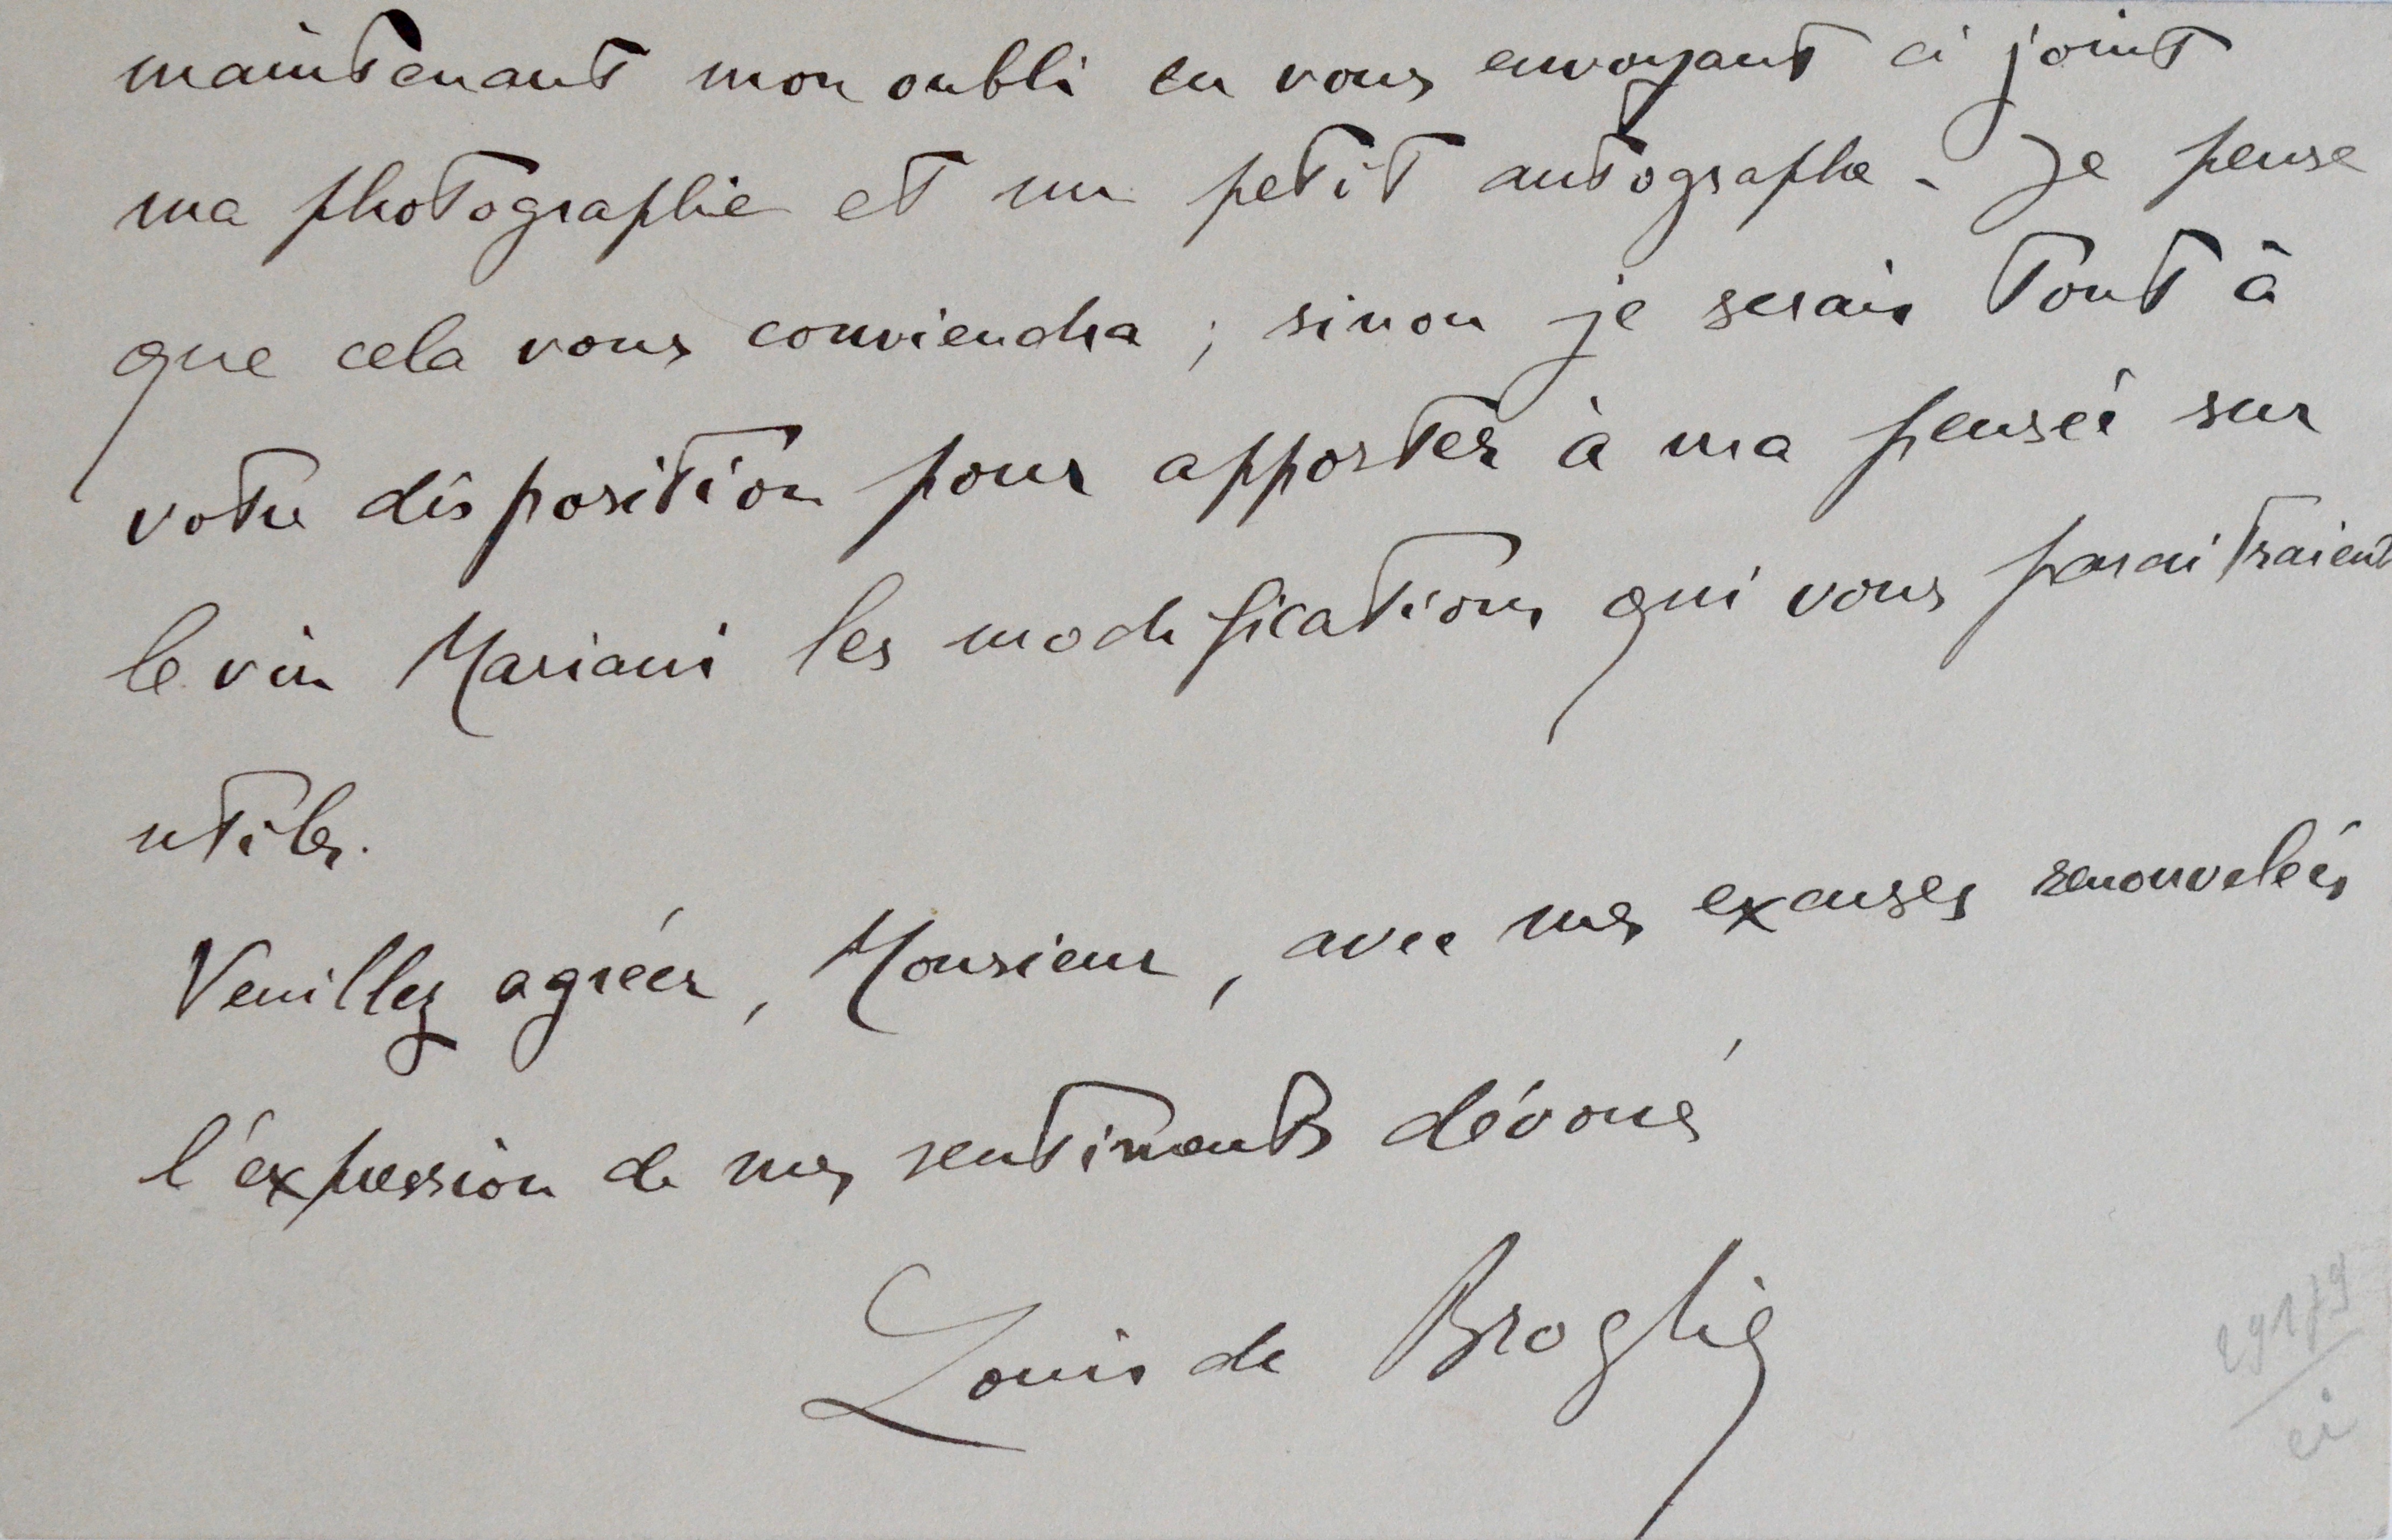 maintenant mon oubli en vous envoyant ci joint
ma photographie et un petit autographe. Je pense
que cela vous conviendra ; sinon je serais tout à
votre disposition pour apporter à ma pensée sur
le vin Mariani les modifications qui vous paraitraient
utiles.
Veuillez agréer, Monsieur, avec mes excuses renouvelées
l'expression de mes sentiments dévoués
Louis de Broglie
29179